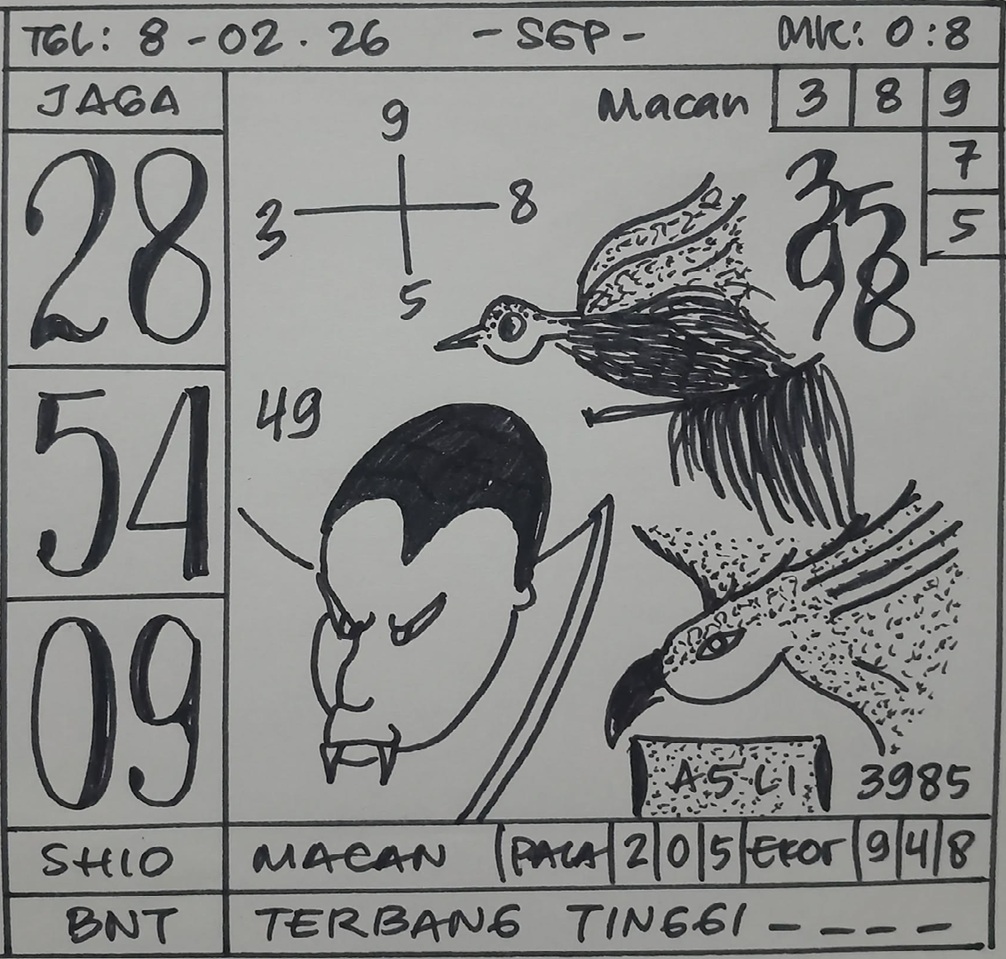 TGL: 8-02.26 -SGP- MK: 0:8
JAGA
28
54
09
9
3 8
5
Macan 3 8 9
7
5
35
98
49
ASLI
3985
SHIO MACAN PALA 2 0 5 EKOR 9 4 8
BNT TERBANG TINGGI ----